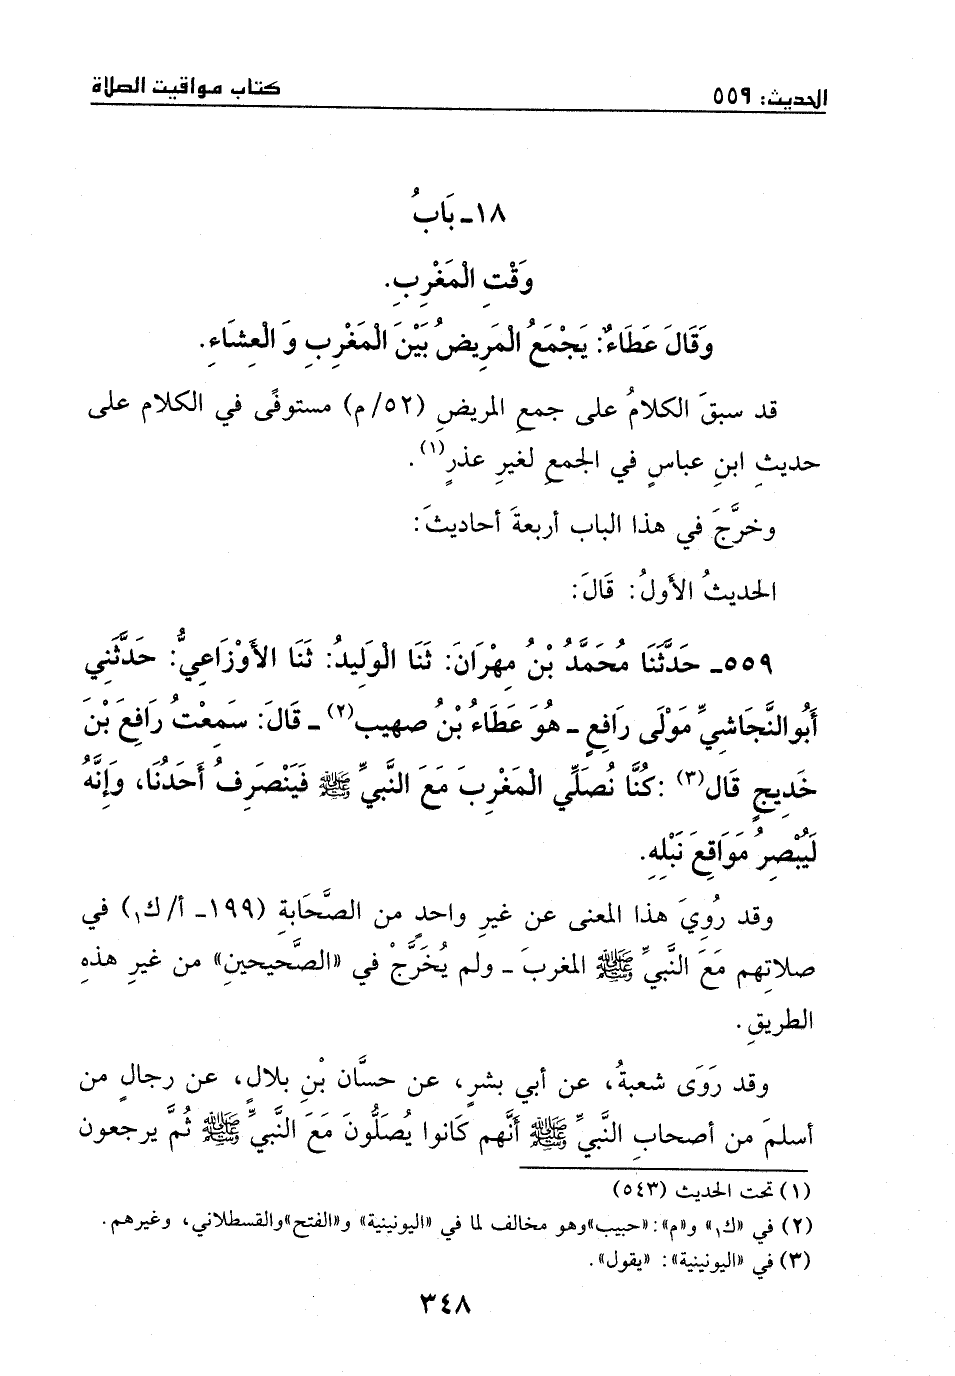 الحديث: ٥٥٩ كتاب مواقيت الصلاة
١٨ـ بَابُ
وَقْتِ الْمَغْرِبِ.
وَقَالَ عَطَاءٌ: يَجْمَعُ الْمَرِيضُ بَيْنَ الْمَغْرِبِ وَ الْعِشَاءِ.
قد سبقَ الكلامُ على جمعِ المريضِ (٥٢/م) مستوفًى في الكلام على
حديثِ ابنِ عباسٍ في الجمعِ لغيرِ عذرٍ(١).
وخرَّجَ في هذا الباب أربعةَ أحاديثَ:
الحديثُ الأولُ: قَالَ:
٥٥٩ـ حَدَّثَنَا مُحَمَّدُ بْنُ مِهْرَانَ: ثَنَا الْوَلِيدُ: ثَنَا الأَوْزَاعِيُّ: حَدَّثَنِي
أَبُو النَّجَاشِيِّ مَوْلَى رَافِعٍ ـ هُوَ عَطَاءُ بْنُ صهيب(٢) ـ قَالَ: سَمِعْتُ رَافِعَ بْنَ
خَدِيجٍ قَال(٣) :كُنَّا نُصَلِّي الْمَغْرِبَ مَعَ النَّبِيِّ ﷺ فَيَنْصَرِفُ أَحَدُنَا، وَإِنَّهُ
لَيُبْصِرُ مَوَاقِعَ نَبْلِهِ.
وقد رُوِيَ هذا المعنى عن غيرِ واحدٍ من الصَّحَابةِ (١٩٩ـ أ/ك١) في
صلاتِهم مَعَ النَّبيِّ ﷺ المغربَ ـ ولم يُخَرَّجْ في «الصَّحيحينِ» من غيرِ هذهِ
الطريقِ.
وقد رَوَى شعبةُ، عن أبي بشرٍ، عن حسَّان بْنِ بلالٍ، عن رجالٍ من
أسلمَ من أصحابِ النَّبيِّ ﷺ أنَّهم كَانوا يُصَلُّونَ مَعَ النَّبيِّ ﷺ ثُمَّ يرجعون
(١) تحت الحديث (٥٤٣)
(٢) في «ك١» و«م»: «حبيب»وهو مخالف لما في «اليونينية» و«الفتح»والقسطلاني، وغيرهم.
(٣) في «اليونينية»: «يقول».
٣٤٨